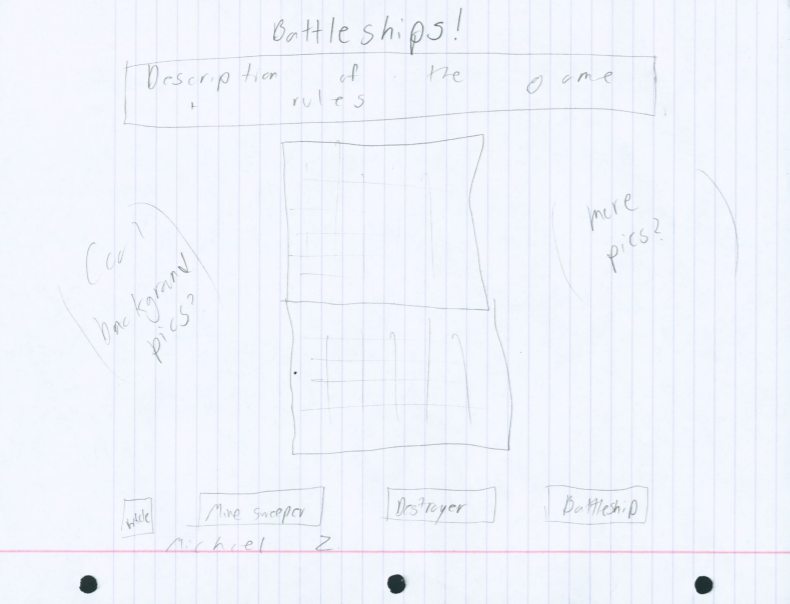 Battleships!
Description of the Game
+ rules
more
pics?
background
pics?
Mine sweeper
Destroyer
Battleship
Michael Z